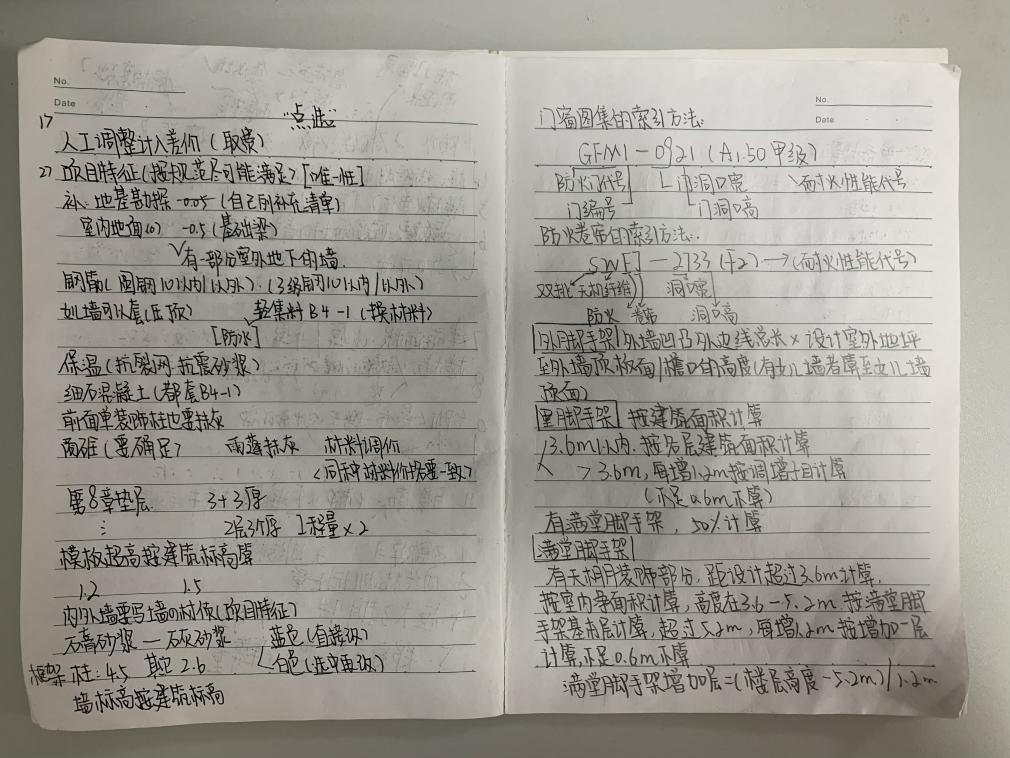 No.
Date
17
"点进"
人工调整计入差价(取费)
27 项目特征(按规范尽可能满足)[唯一性]
补:地基勘探-0.05(自己所补充清单)
室内地面(0) -0.5(基础梁)
有一部分室外地下的墙
钢筋(圆钢10以内/以外)·(3级钢10以内/以外)
女儿墙可以套(压顶) 轻集料B4-1(换材料)
[防水]
保温(抗裂网·抗震砂浆)
细石混凝土(都套B4-1)
前面单装饰柱也要抹灰
面砖(要确足) 雨蓬抹灰 材料调价
<同种材料价格要一致>
第8章垫层 3+3厚
⋮ 2层3厚 工程量×2
模板超高按建筑标高算
1.2 1.5
内外墙要写墙の材质(项目特征)
石膏砂浆—石灰砂浆 蓝色(直接改)
框架柱:4.5 其它2.6 白色(进去再改)
墙标高按建筑标高
No.
Date
门窗图集的索引方法:
GFM1-0921(A1.50甲级)
防火门代号 门洞口宽 耐火性能代号
门编号 门洞口高
防火卷帘的索引方法:
SWFJ-2733(F2)→(耐火性能代号)
双轨无机纤维 洞口宽
防火 卷帘 洞口高
外脚手架 外墙凹凸外边线总长×设计室外地坪
至外墙顶板面/檐口的高度(有女儿墙者算至女儿墙
顶面)
里脚手架 按建筑面积计算
3.6m以内,按各层建筑面积计算
>3.6m,每增1.2m按调增子目计算
(不足0.6m不算)
有满堂脚手架,50%计算
满堂脚手架
有天棚装饰部分,距设计超过3.6m计算,
按室内净面积计算,高度在3.6-5.2m,按满堂脚
手架基本层计算,超过5.2m,每增1.2m按增加一层
计算,不足0.6m不算
满堂脚手架增加层=(楼层高度-5.2m)/1.2m